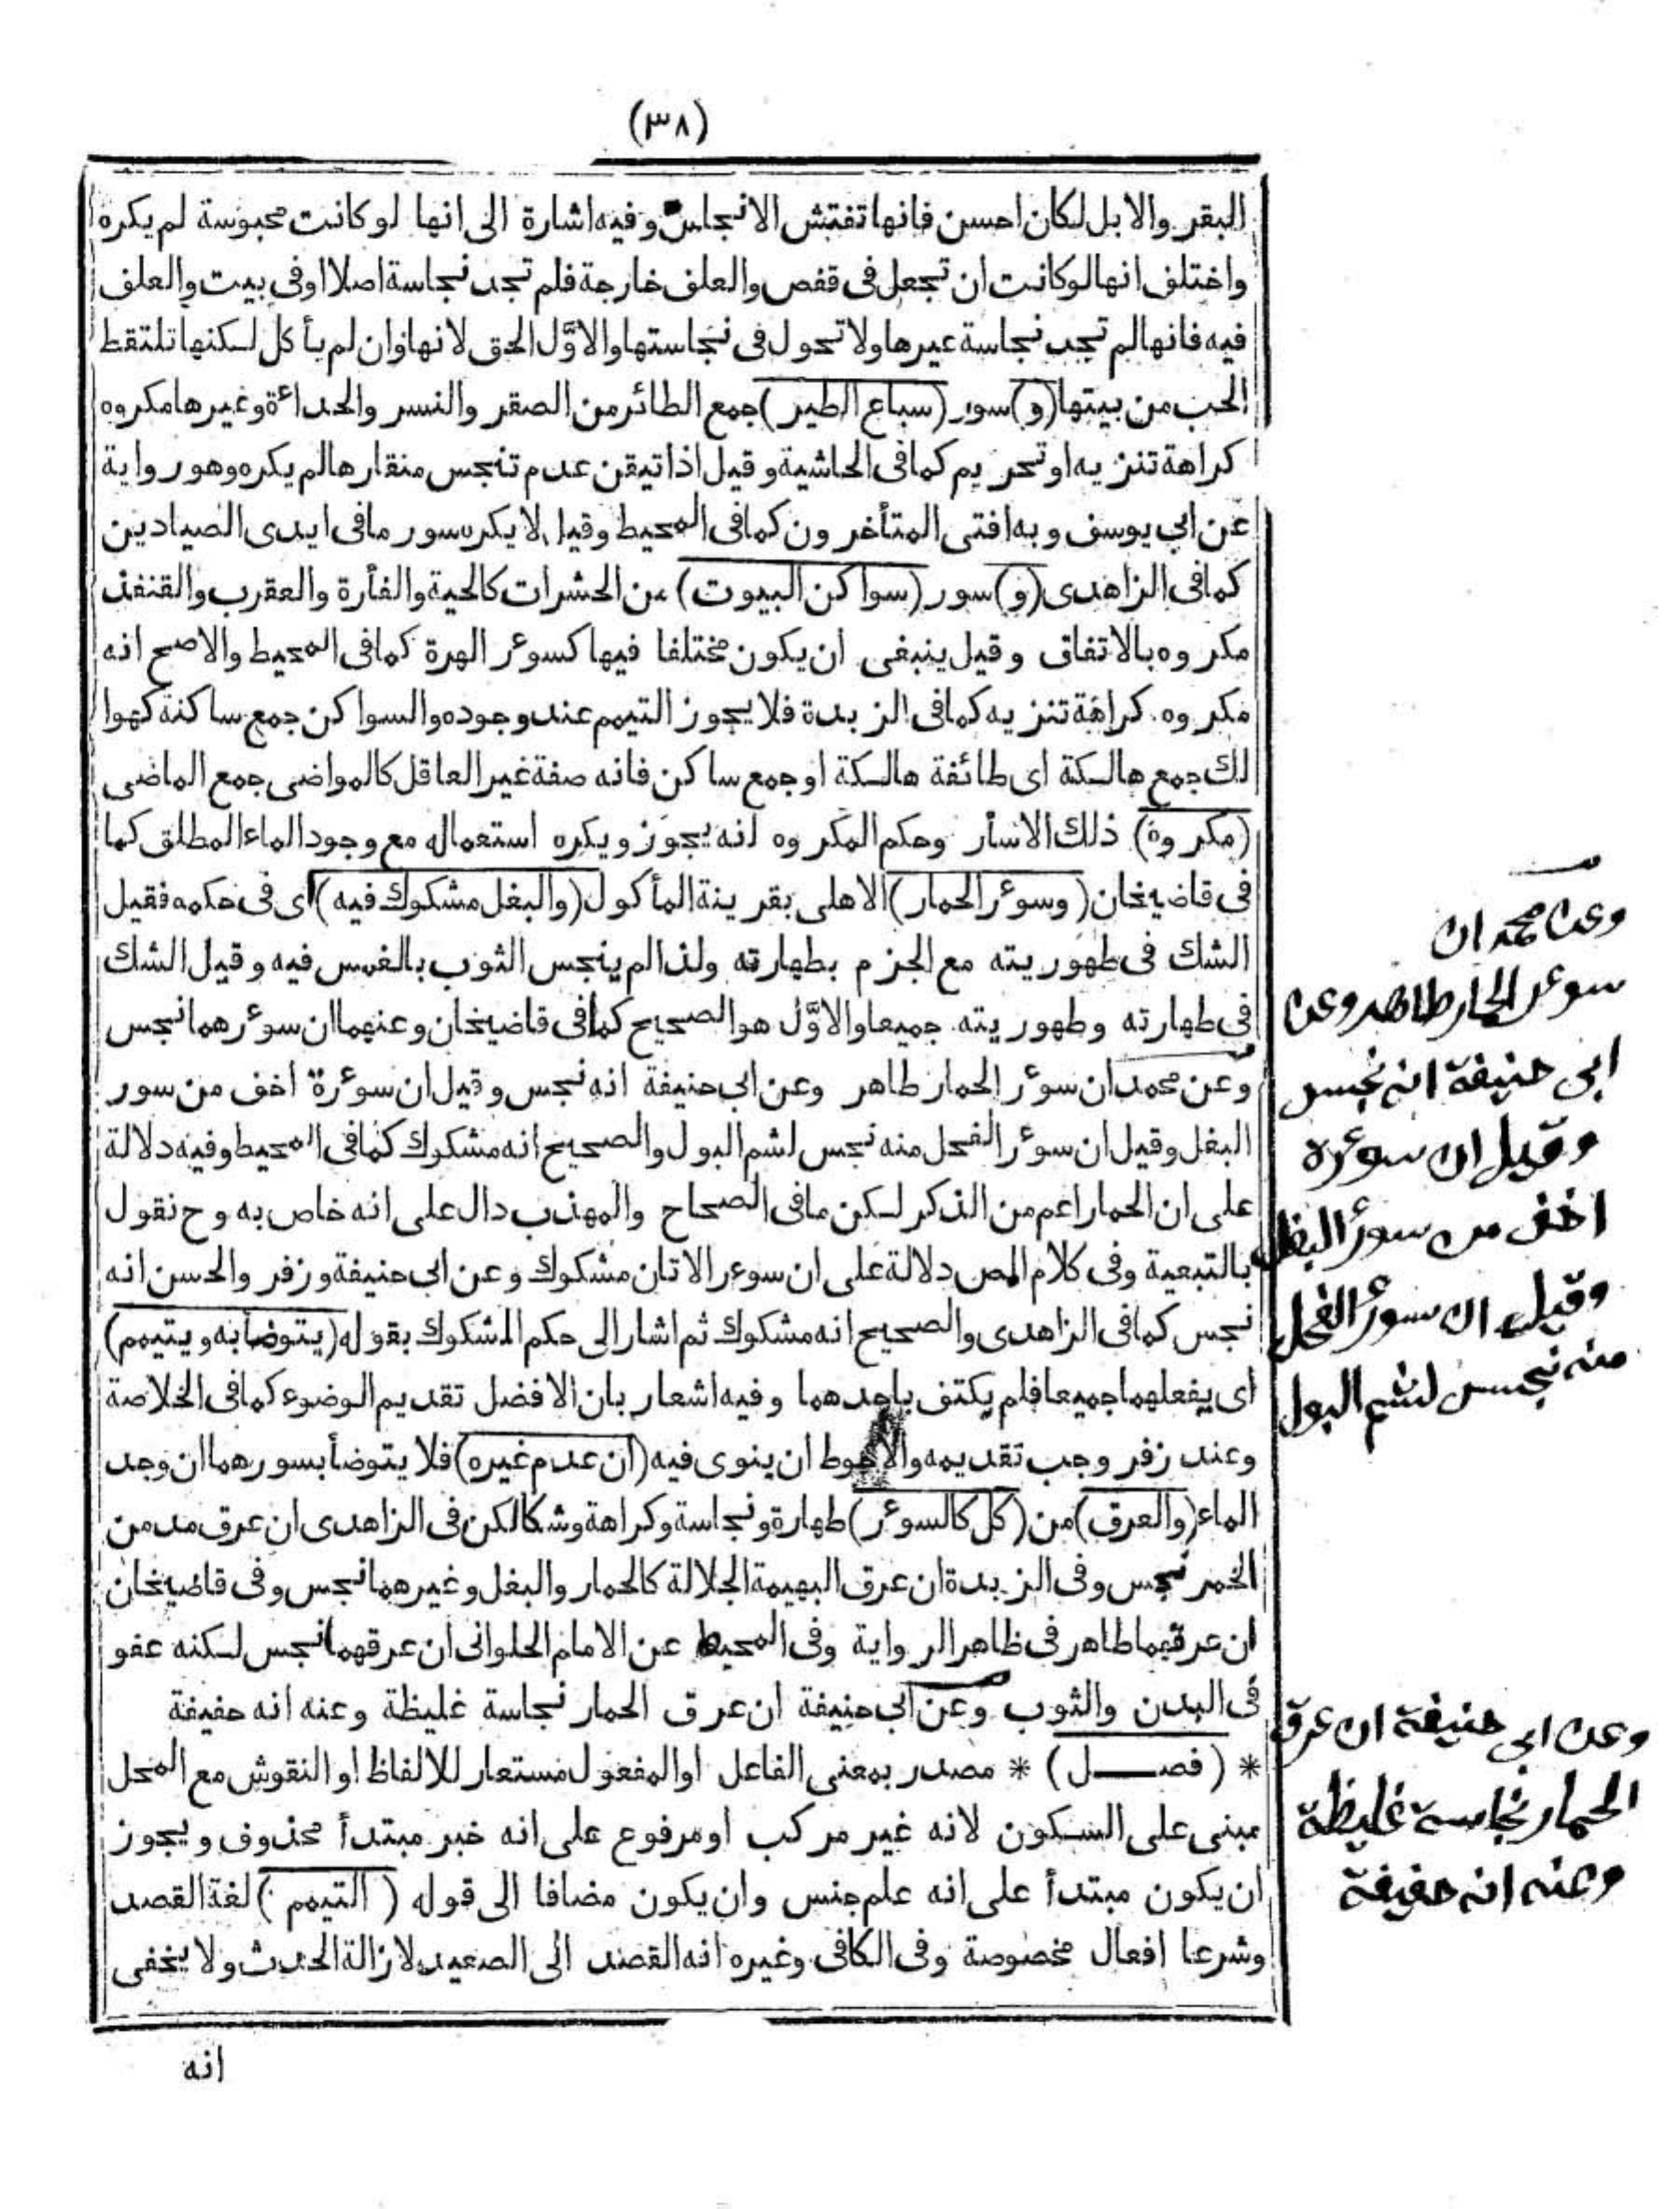 (٣٨)
البقر والابل لكان احسن فانها تفتش الانجاس وفيه اشارة الى انها لوكانت محبوسة لم يكره
واختلف انها لوكانت ان تجعل فى قفص والعلف خارجة فلم تجد نجاسة اصلا اوفى بيت والعلف
فيه فانها لم تجد نجاسة غيرها ولا تحول فى نجاستها والاوّل الحق لانها وان لم يأكل لكنها تلتقط
الحب من بيتها (و) سور (سباع الطير) جمع الطائر من الصقر والنسر والحداءة وغيرها مكروه
كراهة تنزيه او تحريم كما فى الحاشية وقيل اذا تيقن عدم تنجس منقارها لم يكره وهو رواية
عن ابى يوسف وبه افتى المتأخرون كما فى المحيط وقيل لا يكره سور ما فى ايدى الصيادين
كما فى الزاهدى (و) سور (سواكن البيوت) من الحشرات كالحية والفأرة والعقرب والقنفذ
مكروه بالاتفاق وقيل ينبغى ان يكون مختلفا فيها كسوءر الهرة كما فى المحيط والاصح انه
مكروه كراهة تنزيه كما فى الزبدة فلا يجوز التيمم عند وجوده والسواكن جمع ساكنة كهوا
لك جمع هالكة اى طائفة هالكة او جمع ساكن فانه صفة غير العاقل كالمواضى جمع الماضى
(مكروه) ذلك الاسأر وحكم المكروه انه يجوز ويكره استعماله مع وجود الماء المطلق كما
فى قاضيخان (وسوءر الحمار) الاهلى بقرينة المأكول (والبغل مشكوك فيه) اى فى حكمه فقيل
الشك فى طهوريته مع الجزم بطهارته ولذا لم ينجس الثوب بالغمس فيه وقيل الشك
فى طهارته وطهوريته جميعا والاوّل هو الصحيح كما فى قاضيخان وعنهما ان سوءرهما نجس
وعن محمد ان سوءر الحمار طاهر وعن ابى حنيفة انه نجس وقيل ان سوءرة اخف من سور
البغل وقيل ان سوءر الفحل منه نجس لشم البول والصحيح انه مشكوك كما فى المحيط وفيه دلالة
على ان الحمار اعم من الذكر لكن ما فى الصحاح والمهذب دال على انه خاص به وح نقول
بالتبعية وفى كلام المص دلالة على ان سوءر الاتان مشكوك وعن ابى حنيفة وزفر والحسن انه
نجس كما فى الزاهدى والصحيح انه مشكوك ثم اشار الى حكم المشكوك بقوله (يتوضأ به ويتيمم)
اى يفعلهما جميعا فلم يكتف باحدهما وفيه اشعار بان الافضل تقديم الوضوء كما فى الخلاصة
وعند زفر وجب تقديمه والاحوط ان ينوى فيه (ان عدم غيره) فلا يتوضأ بسورهما ان وجد
الماء (والعرق) من (كل كالسوءر) طهارة ونجاسة وكراهة وشكا لكن فى الزاهدى ان عرق مدمن
الخمر نجس وفى الزبدة ان عرق البهيمة الجلالة كالحمار والبغل وغيرهما نجس وفى قاضيخان
ان عرقهما طاهر فى ظاهر الرواية وفى المحيط عن الامام الحلوانى ان عرقهما نجس لكنه عفو
فى البدن والثوب وعن ابى حنيفة ان عرق الحمار نجاسة غليظة وعنه انه حفيفة
* (فصــــل) * مصدر بمعنى الفاعل او المفعول مستعار للالفاظ او النقوش مع المحل
مبنى على السكون لانه غير مركب او مرفوع على انه خبر مبتدأ محذوف ويجوز
ان يكون مبتدأ على انه علم جنس وان يكون مضافا الى قوله (التيمم) لغة القصد
وشرعا افعال مخصوصة وفى الكافى وغيره انه القصد الى الصعيد لازالة الحدث ولا يخفى
انه
وعن محمد ان
سوءر الحمار طاهر وعن
ابى حنيفة انه نجس
وقيل ان سوءرة
اخف من سور البغل
وقيل ان سوءر الفحل
منه نجس لشم البول
وعن ابى حنيفة ان عرق
الحمار نجاسة غليظة
وعنه انه حفيفة